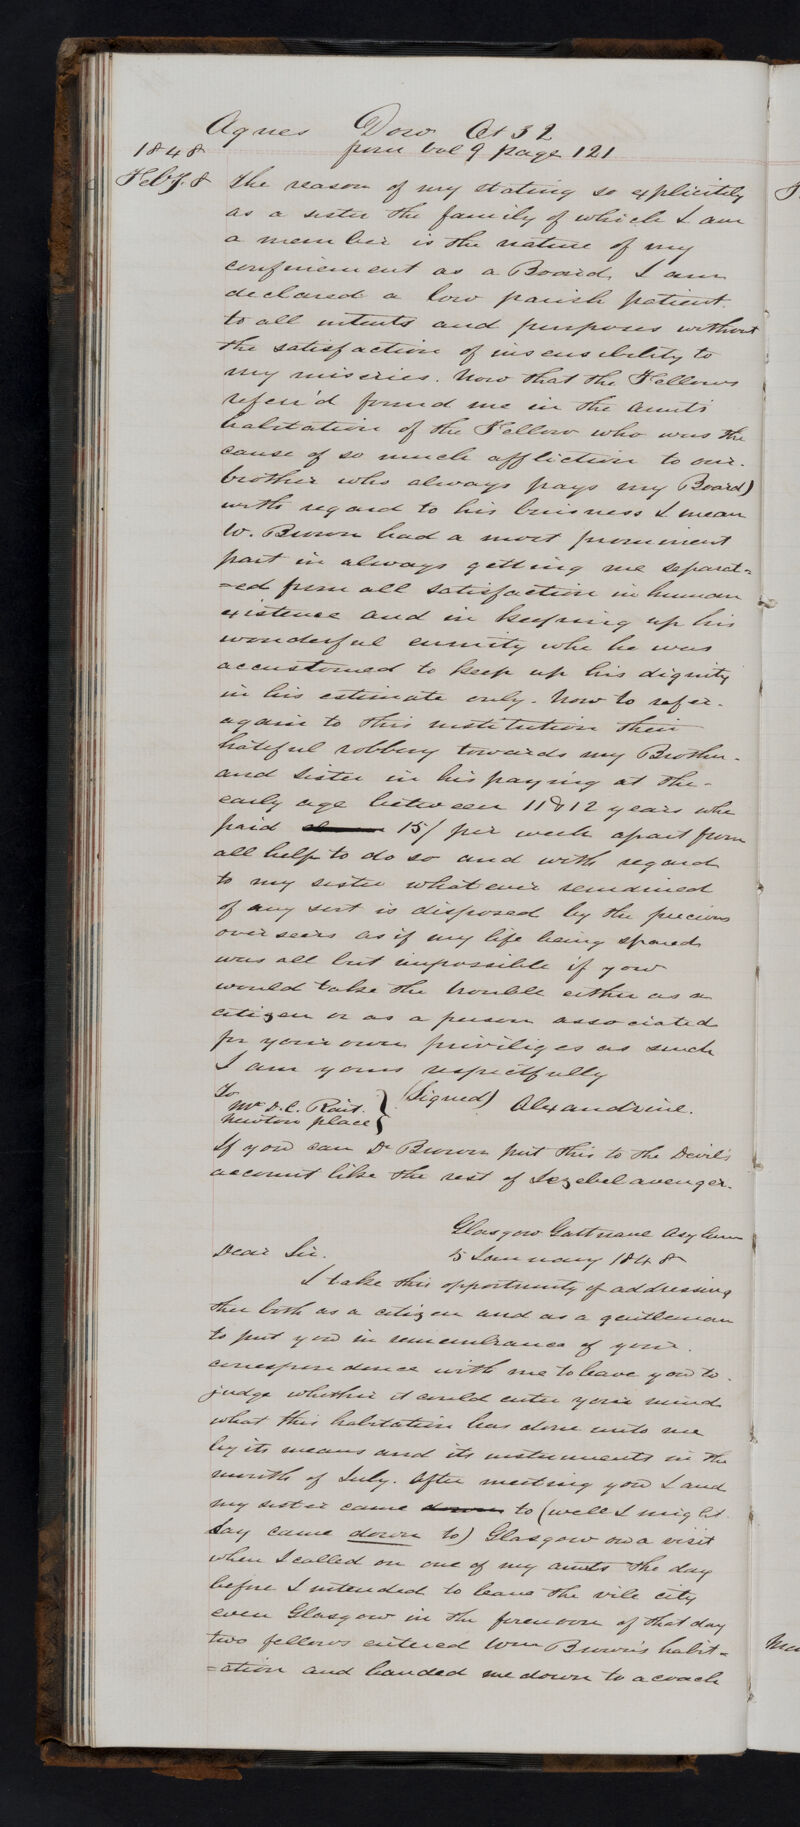 Agnes Dow Æt 32
1848 from Vol 9 page 121
Feby. 8 The reason of my stating so explicitly
as a sister the family of which I am
a member is the nature of my
confinement as a Board I am
declared a low parish patient
to all intents and purposes without
the satisfaction of insensibility to
my miseries. Now that the Fellows
referr'd found me in the aunts
habitation of the Fellow who was the
cause of so much affliction to our
brother who always pays my Board)
with regard to his buisness I mean
W. Brown had a most prominent
part in always getting me separat=
=ed from all satisfaction in human
existence and in keeping up his
wonderful enmity who he was
accustomed to keep up his dignity
in his estimate only. Now to refer
again to this institution their
hateful robbery towards my Brother
and sister in his paying at the
early age between 11 & 12 years who
paid 15/ per week apart from
all help to do so and with regard
to my sister what ever remained
of any sort is disposed by the precious
overseers as if my life being spared
was all but impossible if you
would take the trouble either as a
citizen or as a person associated
for your own priviliges as such
I am yours respectfully
To (Signed) Alexandrine.
Mr D. C. Rait.
Newton place
If you can Dr Brown put this to the Devil's
account like the rest of Jezebel avenger.
Glasgow Gartnavel Asylum
Dear Sir. 15 January 1848
I take this opportunity of addressing
thee both as a citizen and as a gentleman
to put you in remembrance of your
correspondence with me to leave you to
judge whether it could enter your mind
what this habitation has done unto me
by its means and its instruments in the
month of July. After meeting you I and
my sister came down to (well I might
say came down to) Glasgow on a visit
when I called on one of my aunts the day
before I intended to leave the vile city
even Glasgow in the forenoon of that day
two fellows entered Wm Brown's habit=
=ation and handed me down to a coach